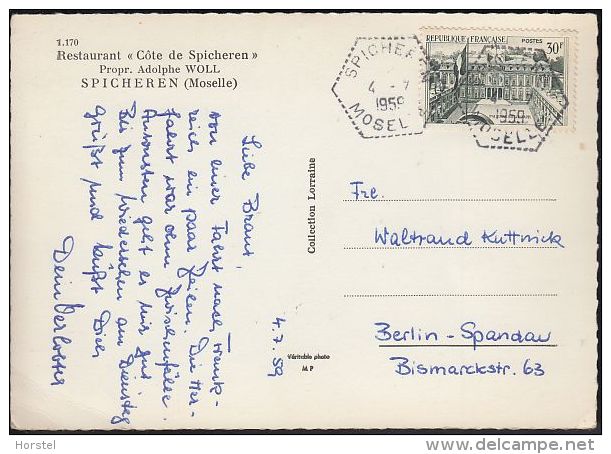 1.170
Restaurant « Côte de Spicheren »
Propr. Adolphe WOLL
SPICHEREN (Moselle)
REPUBLIQUE FRANÇAISE POSTES
30F
SPICHEREN
4 - 7
1959
MOSELLE
1959
MOSELLE
4.7.59
Liebe Braut,
von einer Fahrt nach Frank-
reich ein paar Zeilen. Die Her-
fahrt war ohne Zwischenfälle.
Ansonsten geht es mir gut
Bis zum Wiedersehen am Dienstag
grüßt und küßt Dich
Dein Verlobter
Collection Lorraine
Véritable photo
M P
Fre.
Waltraud Kuttnick
Berlin-Spandau
Bismarckstr. 63
Horstel
© delcampe.net